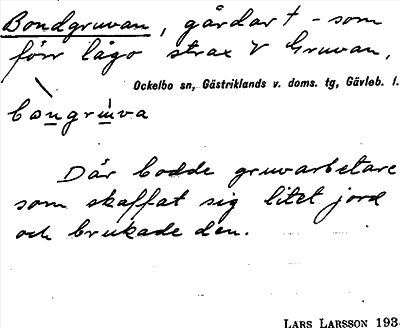 Bondgruvan, gårdar † - som
förr lågo strax V Gruvan,
Ockelbo sn, Gästriklands v. doms. tg, Gävleb. l.
Där bodde gruvarbetare
som skaffat sig litet jord
och brukade den.
LARS LARSSON 193